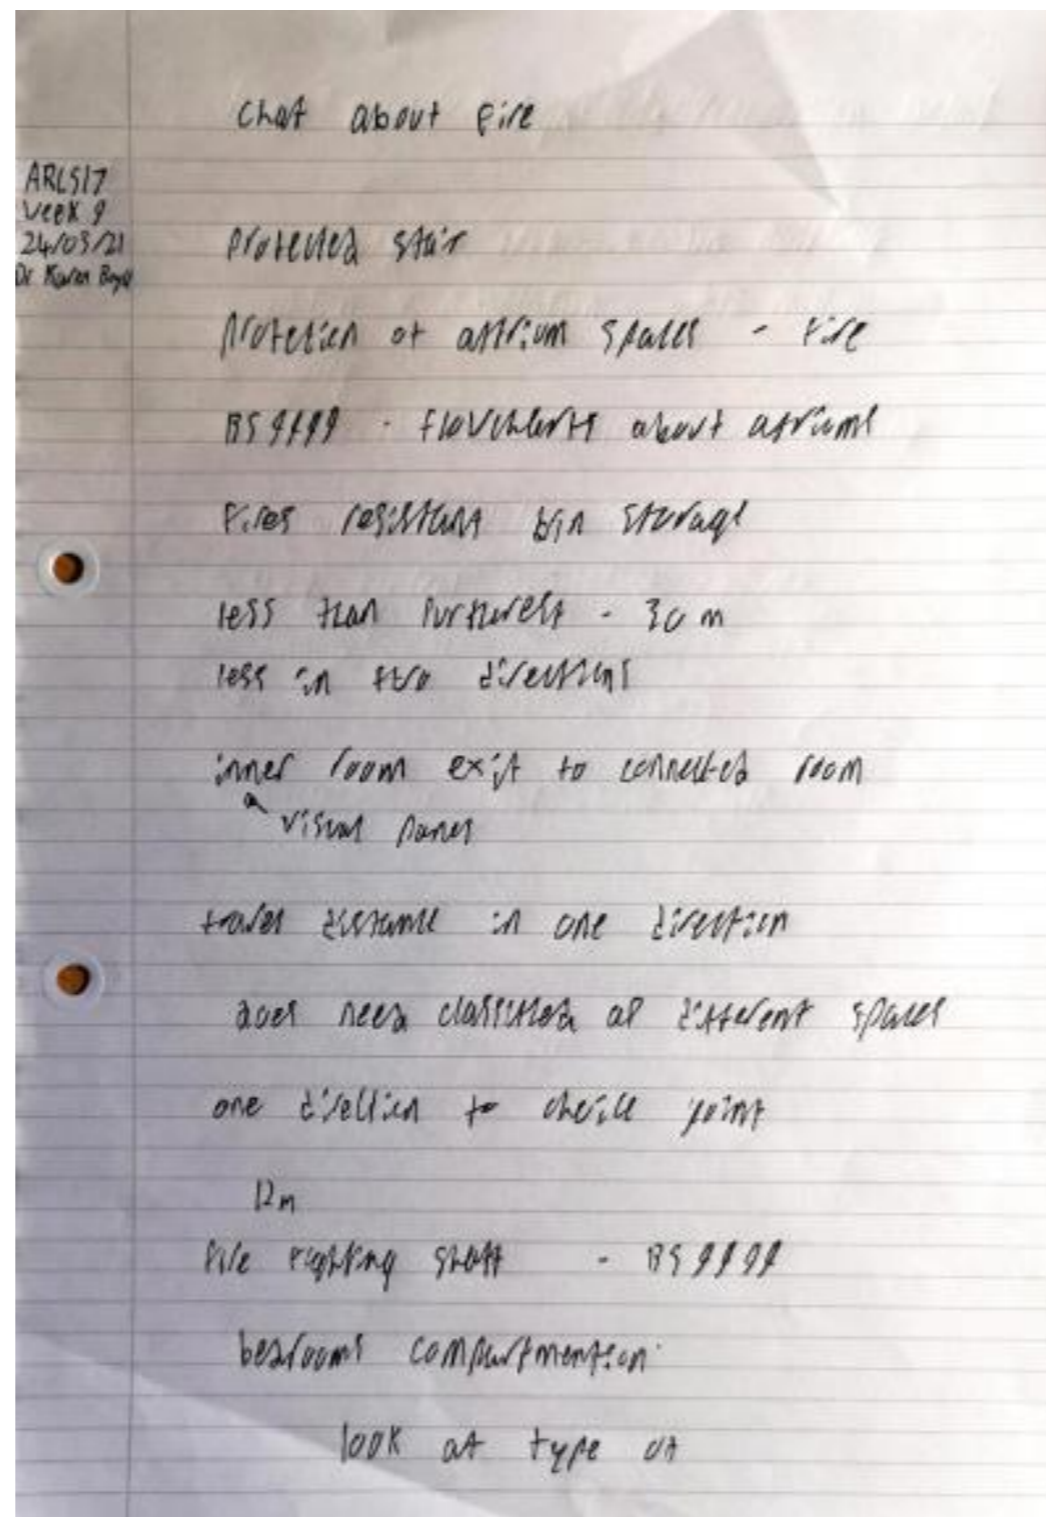 chat about fire
ARC517
Week 9
24/03/21
Dr Karen Boyd
protected stair
protection of attrium spaces - fire
BS 9999 - flowcharts about atriums
Fires resistant bin storage
less than furtherest - 30 m
less in two directions
inner room exit to connected room
visual panel
travel distance in one direction
does need classified as different spaces
one direction to choice point
12m
fire fighting shaft - BS 9999
bedrooms compartmention
look at type of